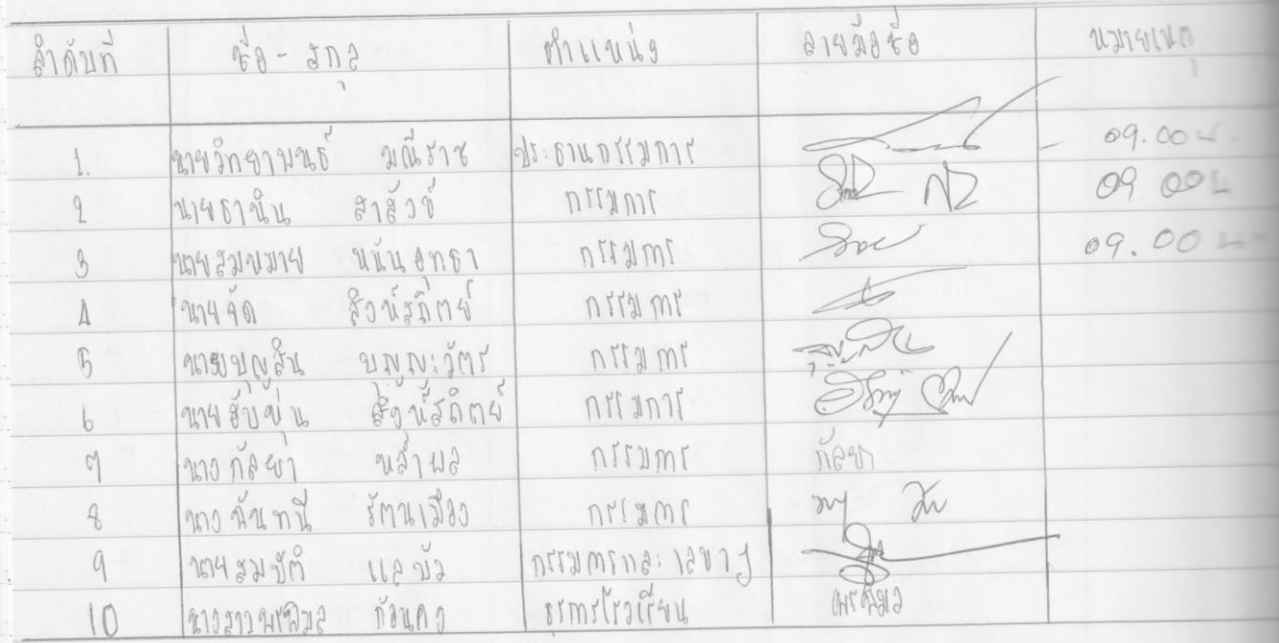 ลำดับที่ ชื่อ - สกุล ตำแหน่ง ลายมือชื่อ หมายเหตุ
1. มณีราช ประธานกรรมการ 09.00 น.
2 นายธานิน กรรมการ 09 00 น
3 นายสมหมาย กรรมการ 09.00 น
4 นายจัด สิงห์สถิตย์ กรรมการ
5 นายบุญสิน กรรมการ
6 สิงห์สถิตย์ กรรมการ
7 นาง กัลยา หล้าผล กรรมการ กัลยา
8 นาง นันทนี รัตนเมือง กรรมการ
9 นายสมบัติ แลบัว กรรมการและเลขาฯ
10 นางสาวพรพิมล ก้อนคง ธุรการโรงเรียน พรพิมล